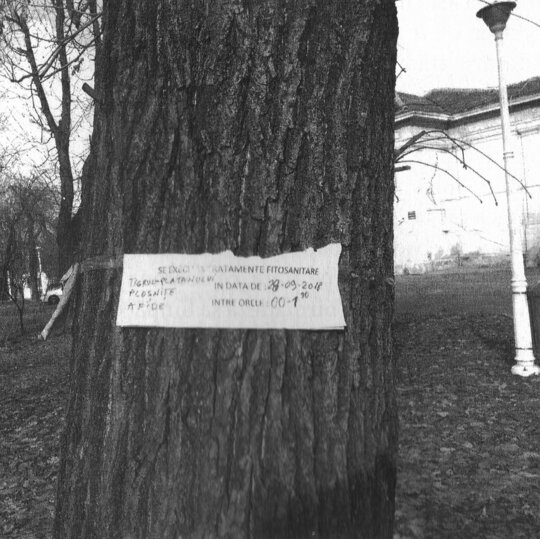 SE EXECUTA TRATAMENTE FITOSANITARE
TIGRUL-PLATANULUI
PLOSNIȚE
AFIDE
IN DATA DE: 28-09-2018
INTRE ORELE: 00-1³⁰